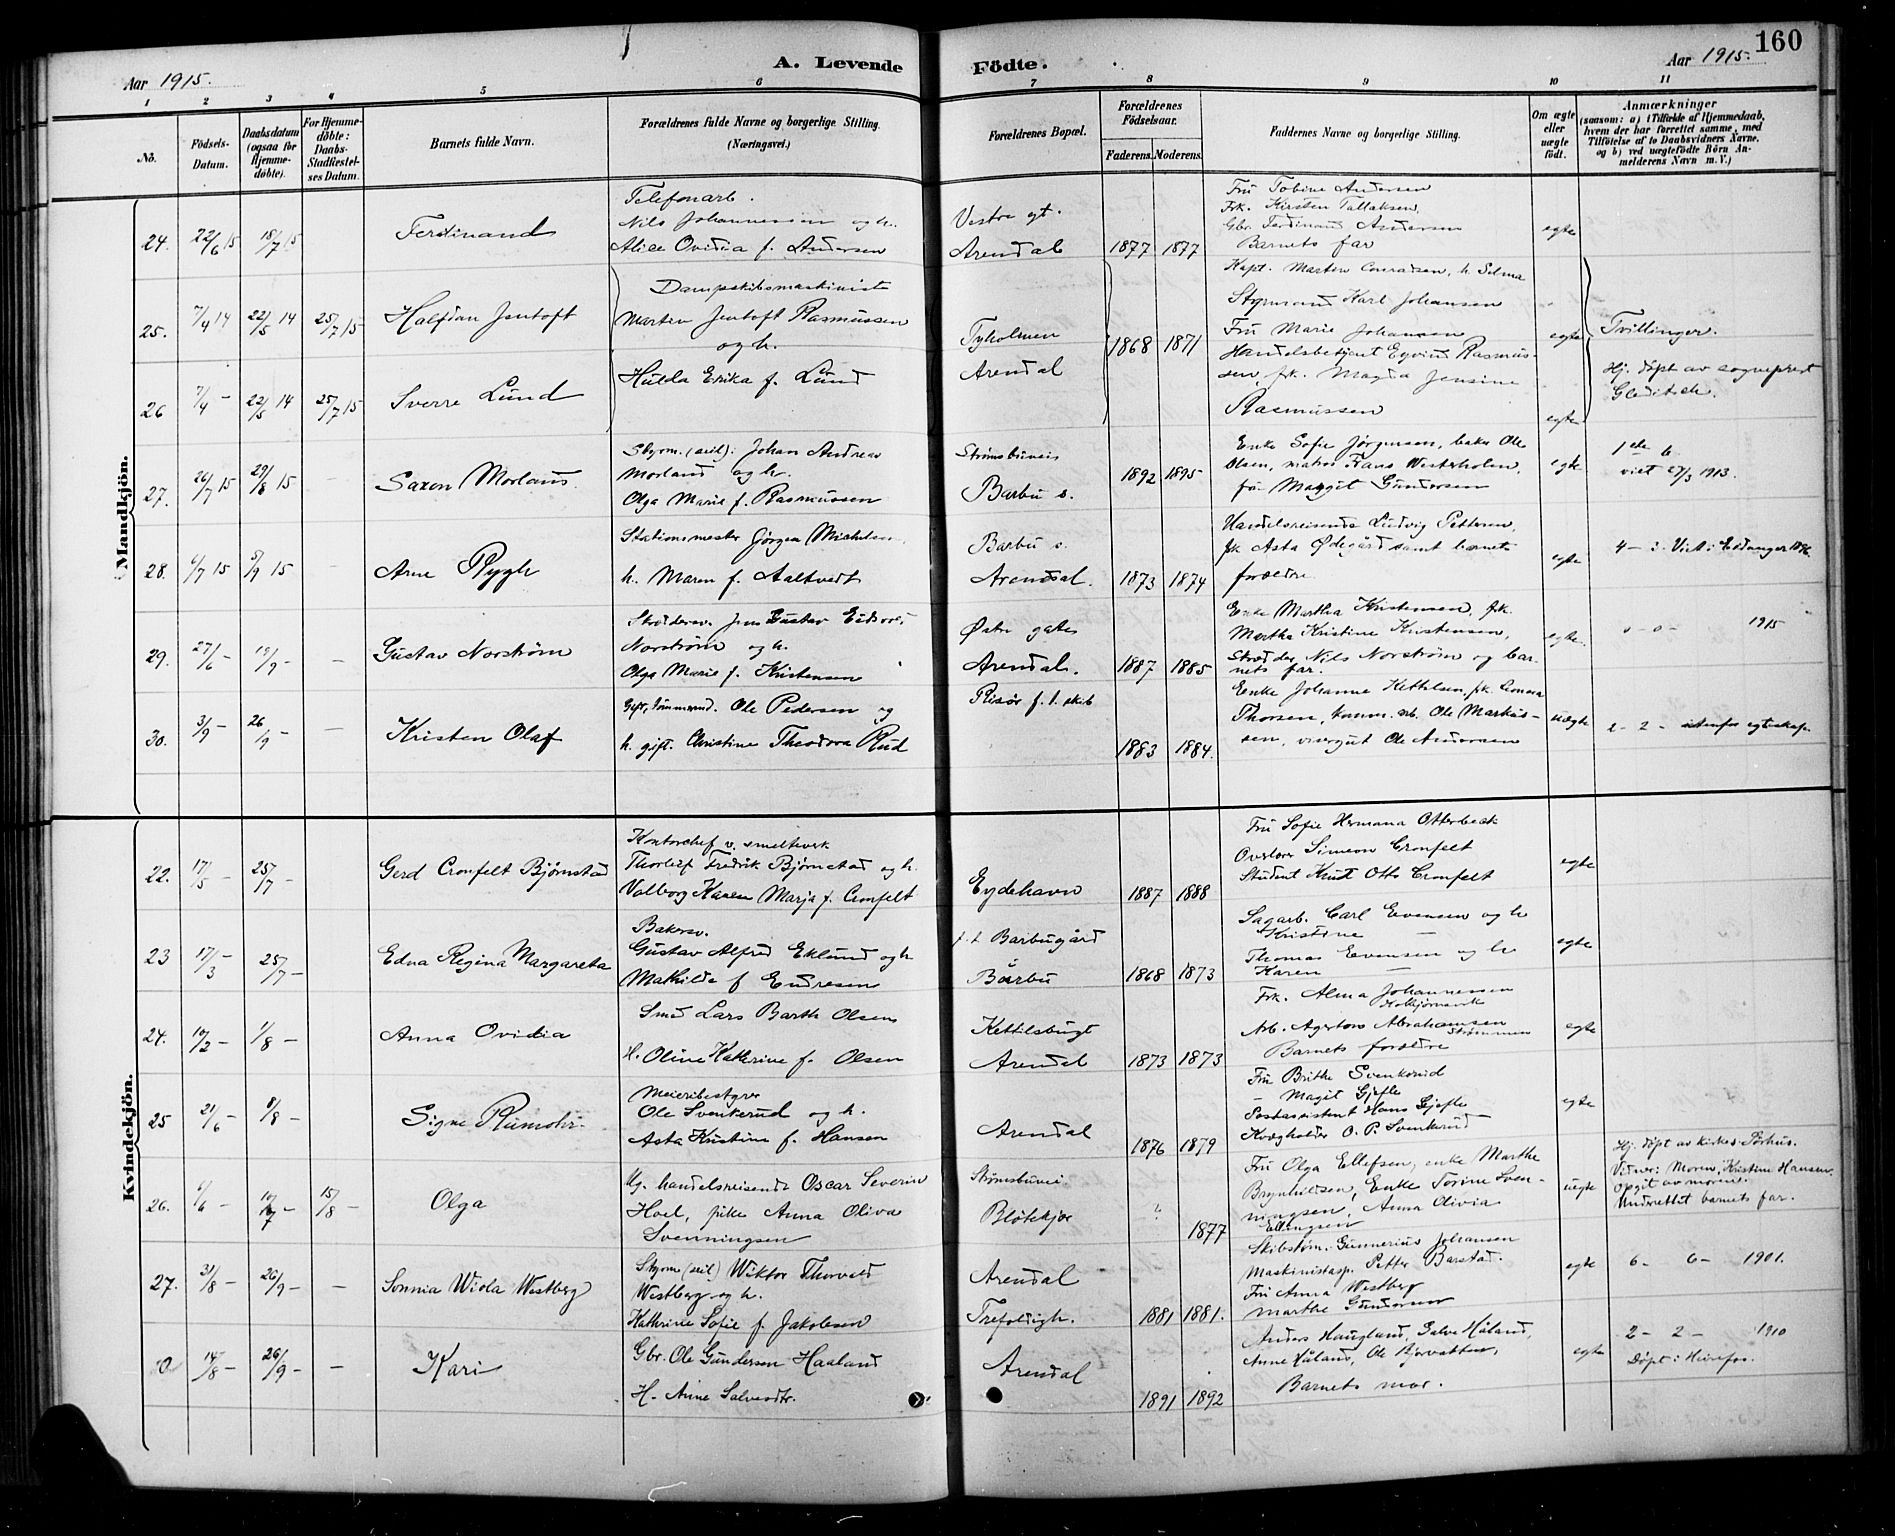 160
Aar 1915.
A. Levende Födte.
Aar 1915.
1 2 3 4 5 6 7 8 9 10 11
No.
Födsels-Datum.
Daabsdatum (ogsaa for Hjemme-döbte).
For Hjemme-döbte: Daabs-Stadfæstel-ses Datum.
Barnets fulde Navn.
Forældrenes fulde Navne og borgerlige Stilling. (Næringsvei.)
Forældrenes Bopæl.
Forældrenes Födselsaar.
Faderens. Moderens.
Faddernes Navne og borgerlige Stilling.
Om ægte eller uægte födt.
Anmærkninger
(saasom: a) i Tilfælde af Hjemmedaab,
hvem der har forrettet samme, med
Tilföielse af to Daabsvidners Navne,
og b) ved uægtefödte Börn An-
melderens Navn m. V.)
Mandkjön.
24. 22/6 15 18/7 15 Ferdinand
Telefonarb.
Nils Johannessen og h.
Alice Ovidia f. Andersen
Vestre gt.
Arendal 1877 1877
Fru Tobine Andersen
Frk. Kirsten Tallaksen,
Gbr. Ferdinand Andersen
Barnets far
egte
25. 7/4 14 22/5 14 25/7 15 Halfdan Jentoft
Dampskibsmaskinist
Martin Jentoft Rasmussen
og h.
Hulda Erika f. Lund
Tyholmen
Arendal
1868 1871
Kapt. Marten Conradsen, h. Selma
Styrmand Karl Johansen
Fru Marie Johansen
Handelsbetjent Eyvind Rasmus-
sen, frk. Magda Jensine
Rasmussen
egte
Tvillinger.
Hj. døpt av sogneprest
Gleditsch.
26 7/4 – 22/5 14 25/7 15 Sverre Lund
egte
27. 26/7 15 29/8 15 – Saxen Morland
Styrm. (seil): Johan Andreas
Morland og h.
Olga Marie f. Rasmussen
Strømsbuveis
Barbu s. 1892 1895
Enke Sofie Jørgensen, Ole
Olsen, matros Frans Westerholen,
fru Margit Gundersen
egte
1ste b.
viet 27/3 1913.
28. 6/7 15 5/9 15 – Arne Rygh
Stationsmester Jørgen Michelsen
h. Maren f. Aaltvedt
Barbu s.
Arendal. 1873 1874
Handelsreisende Ludvig Pettersen,
frk Asta Ødegård samt barnets
forældre
egte
4 – 3. Viet i Eidanger
29. 27/6 – 19/9 – – Gustav Norstrøm
Skræddersv. Jens Gustav
Norstrøm og h.
Olga Marie f. Kristensen
Østre gate
Arendal. 1887 1885
Enke Martha Kristensen, frk.
Martha Kristine Kristensen,
Skrædder Nils Norstrøm og bar-
nets far.
egte.
1915
30. 3/9 – 26/9 – – Kristen Olaf
Gift, tømmermd. Ole Pedersen og
h. gift. Christine Theodora Rud
Risør f. t. skib
1883 1884.
Enke Johanne Kettilsen, frk. Leonora
Thorsen, komm. arb. Ole Markus-
sen, visergut Ole Andersen
uegte
2 – 2 – utenfor egteskap.
Kvindekjön.
22. 17/5 – 25/7 – Gerd Cronfelt Bjørnstad
Kontorchef v. smelteverk
Thorleif Fredrik Bjørnstad og h.
Valborg Karen Marja f. Cronfelt
Eydehavn 1887 1888
Fru Sofie Hermana Otterbeck
Overlærer Simeon Cronfelt
Student Knut Otto Cronfelt
egte
23 17/3 – 25/7 – Edna Regina Margareta
Bakersv.
Gustav Alfred Eklund og h
Mathilde f Endresen
f. t. Barbugård
Barbu 1868 1873
Sagarb. Carl Evensen og h
Kristine —
Thomas Evensen og h
Karen —
egte
24. 19/2 – 1/8 – Anna Ovidia
Smed Lars Barth Olsen
H. Oline Kathrine f. Olsen
Kettilsbugt
Arendal 1873 1873
Frk. Alma Johannessen
Arb. Agerton Abrahamsen
Strømmen
Barnets forældre
egte
25 21/6 – 8/8 – Signe Rumohr
Meieribestyrer
Ole Svenkerud og h.
Asta Kristine f. Hansen
Arendal 1876 1879
Fru Brithe Svenkerud
– Magit Gjefle
Postassistent Hans Gjefle
Kvægholder O. P. Svenkerud
egte
26. 6/6 – 10/7 – 15/8 – Olga
Ug. handelsreisende Oscar Severin
Hoel, pike Anna Oliva
Svenningsen
Strømsbuvei
Bløtekjær ? 1877
Fru Olga Ellefsen, enke Marthe
Brynhildsen, Enke Torine Sven-
ningsen, Anna Olivia
Ellingsen
uegte
Hj. døpt av kirkes. Sørhus.
Vidner: Moren, Kristine Hansen.
Opgit av moren.
Underrettet barnets far.
27. 3/8 – 26/9 – – Sonnia Wiola Westberg
Styrm (seil) Wiktor Thorvald
Westberg og h.
Kathrine Sofie f. Jakobsen
Arendal
Trefoldigh. 1881 1881.
Skibstøm. Gunnerius Johansen
Maskinistasp. Petter Barstad.
Fru Anna Westberg
Marthe Gundersen
egte
6 – 6 – 1901.
14/8 – 26/9 – – Kari
Gbr. Ole Gundersen Haaland
H. Anne Salvesdtr.
Arendal 1891 1892
Anders Haugland, Salve Håland,
Anne Håland, Ole Bjorvatten,
Barnets mor.
egte
2 – 2 – 1910
Døpt i Herefos.